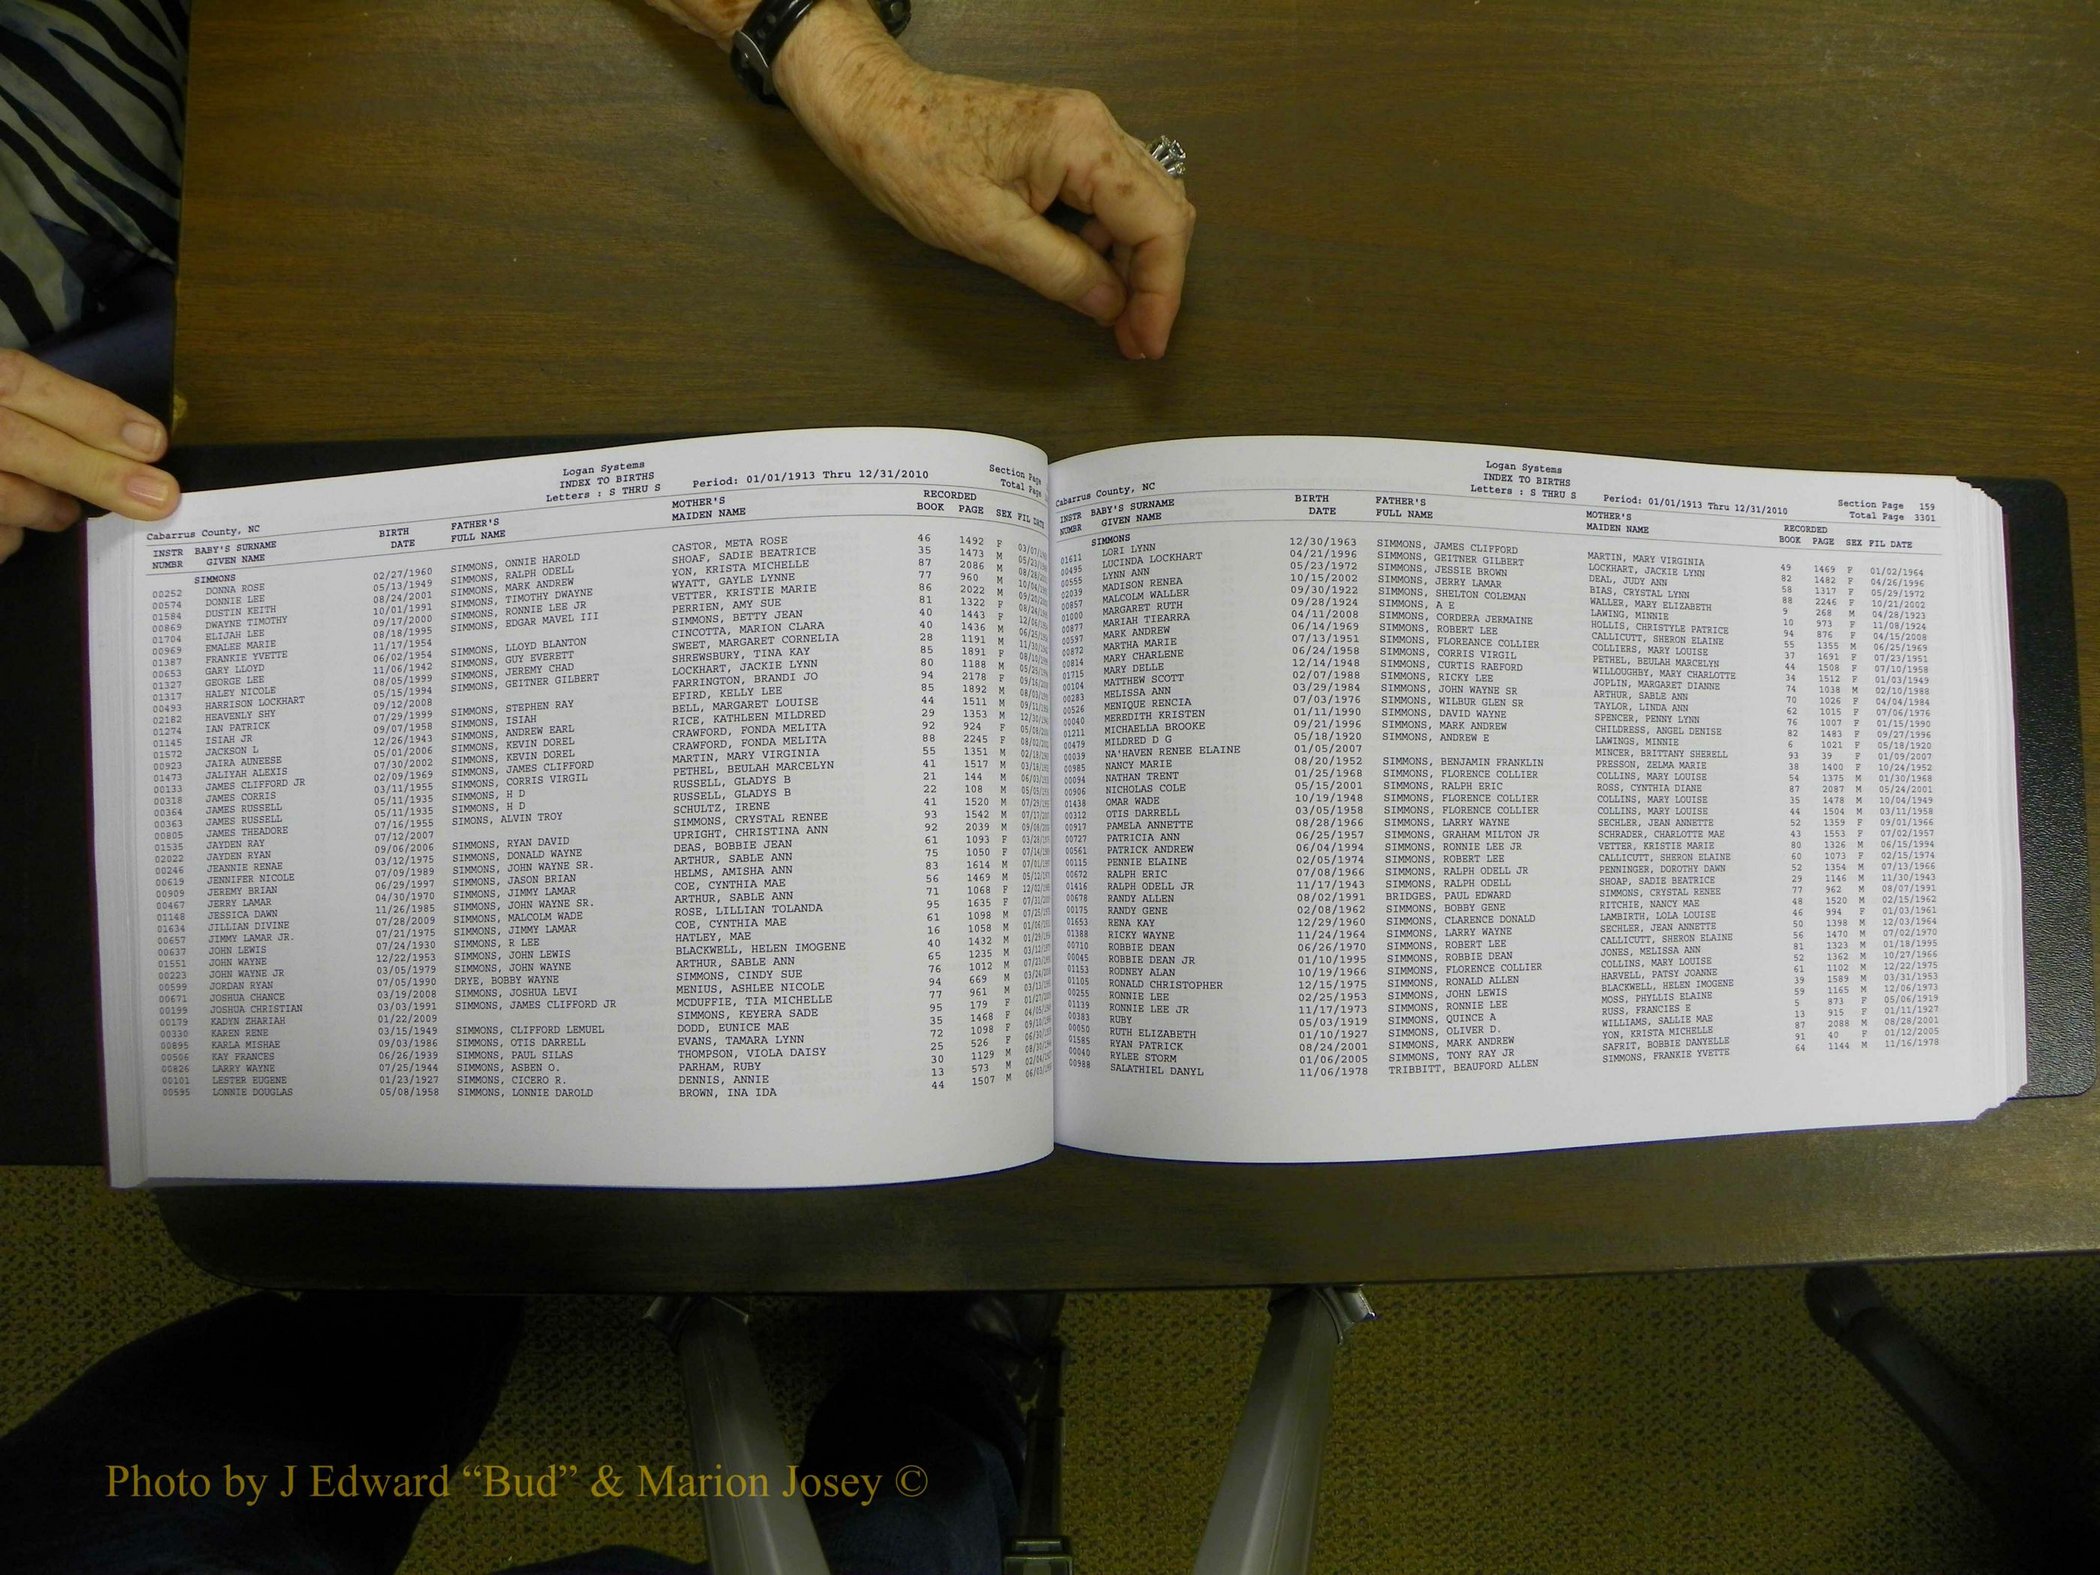 Logan Systems
INDEX TO BIRTHS
Letters : S THRU S Period: 01/01/1913 Thru 12/31/2010
Section Page
Total Page
Cabarrus County, NC
INSTR BABY'S SURNAME BIRTH FATHER'S MOTHER'S RECORDED
NUMBR GIVEN NAME DATE FULL NAME MAIDEN NAME BOOK PAGE SEX FIL DATE
SIMMONS
00252 DONNA ROSE 02/27/1960 SIMMONS, ONNIE HAROLD CASTOR, META ROSE 46 1492 F
00574 DONNIE LEE 05/13/1949 SIMMONS, RALPH ODELL SHOAF, SADIE BEATRICE 35 1473 M
01584 DUSTIN KEITH 08/24/2001 SIMMONS, MARK ANDREW YON, KRISTA MICHELLE 87 2086 M
00869 DWAYNE TIMOTHY 10/01/1991 SIMMONS, TIMOTHY DWAYNE WYATT, GAYLE LYNNE 77 960 M
01704 ELIJAH LEE 09/17/2000 SIMMONS, RONNIE LEE JR VETTER, KRISTIE MARIE 86 2022 M
00969 EMALEE MARIE 08/18/1995 SIMMONS, EDGAR MAVEL III PERRIEN, AMY SUE 81 1322 F
01387 FRANKIE YVETTE 11/17/1954 SIMMONS, BETTY JEAN 40 1443 F
00653 GARY LLOYD 06/02/1954 SIMMONS, LLOYD BLANTON CINCOTTA, MARION CLARA 40 1436 M
01327 GEORGE LEE 11/06/1942 SIMMONS, GUY EVERETT SWEET, MARGARET CORNELIA 28 1191 M
01317 HALEY NICOLE 08/05/1999 SIMMONS, JEREMY CHAD SHREWSBURY, TINA KAY 85 1891 F
00493 HARRISON LOCKHART 05/15/1994 SIMMONS, GEITNER GILBERT LOCKHART, JACKIE LYNN 80 1188 M
02182 HEAVENLY SHY 09/12/2008 FARRINGTON, BRANDI JO 94 2178 F
01274 IAN PATRICK 07/29/1999 SIMMONS, STEPHEN RAY EFIRD, KELLY LEE 85 1892 M
01145 ISIAH JR 09/07/1958 SIMMONS, ISIAH BELL, MARGARET LOUISE 44 1511 M
01572 JACKSON L 12/26/1943 SIMMONS, ANDREW EARL RICE, KATHLEEN MILDRED 29 1353 M
00923 JAIRA AUNEESE 05/01/2006 SIMMONS, KEVIN DOREL CRAWFORD, FONDA MELITA 92 924 F
01473 JALIYAH ALEXIS 07/30/2002 SIMMONS, KEVIN DOREL CRAWFORD, FONDA MELITA 88 2245 F
00133 JAMES CLIFFORD JR 02/09/1969 SIMMONS, JAMES CLIFFORD MARTIN, MARY VIRGINIA 55 1351 M
00318 JAMES CORRIS 03/11/1955 SIMMONS, CORRIS VIRGIL PETHEL, BEULAH MARCELYN 41 1517 M
00364 JAMES RUSSELL 05/11/1935 SIMMONS, H D RUSSELL, GLADYS B 21 144 M
00363 JAMES RUSSELL 05/11/1935 SIMMONS, H D RUSSELL, GLADYS B 22 108 M
00805 JAMES THEADORE 07/16/1955 SIMONS, ALVIN TROY SCHULTZ, IRENE 41 1520 M
01535 JAYDEN RAY 07/12/2007 SIMMONS, CRYSTAL RENEE 93 1542 M
02022 JAYDEN RYAN 09/06/2006 SIMMONS, RYAN DAVID UPRIGHT, CHRISTINA ANN 92 2039 M
00246 JEANNIE RENAE 03/12/1975 SIMMONS, DONALD WAYNE DEAS, BOBBIE JEAN 61 1093 F
00619 JENNIFER NICOLE 07/09/1989 SIMMONS, JOHN WAYNE SR. ARTHUR, SABLE ANN 75 1050 F
00909 JEREMY BRIAN 06/29/1997 SIMMONS, JASON BRIAN HELMS, AMISHA ANN 83 1614 M
00467 JERRY LAMAR 04/30/1970 SIMMONS, JIMMY LAMAR COE, CYNTHIA MAE 56 1469 M
01148 JESSICA DAWN 11/26/1985 SIMMONS, JOHN WAYNE SR. ARTHUR, SABLE ANN 71 1068 F
01634 JILLIAN DIVINE 07/28/2009 SIMMONS, MALCOLM WADE ROSE, LILLIAN TOLANDA 95 1635 F
00657 JIMMY LAMAR JR. 07/21/1975 SIMMONS, JIMMY LAMAR COE, CYNTHIA MAE 61 1098 M
00637 JOHN LEWIS 07/24/1930 SIMMONS, R LEE HATLEY, MAE 16 1058 M
01551 JOHN WAYNE 12/22/1953 SIMMONS, JOHN LEWIS BLACKWELL, HELEN IMOGENE 40 1432 M
00223 JOHN WAYNE JR 03/05/1979 SIMMONS, JOHN WAYNE ARTHUR, SABLE ANN 65 1235 M
00599 JORDAN RYAN 07/05/1990 DRYE, BOBBY WAYNE SIMMONS, CINDY SUE 76 1012 M
00671 JOSHUA CHANCE 03/19/2008 SIMMONS, JOSHUA LEVI MENIUS, ASHLEE NICOLE 94 669 M
00199 JOSHUA CHRISTIAN 03/03/1991 SIMMONS, JAMES CLIFFORD JR MCDUFFIE, TIA MICHELLE 77 961 M
00179 KADYN ZHARIAH 01/22/2009 SIMMONS, KEYERA SADE 95 179 F
00330 KAREN RENE 03/15/1949 SIMMONS, CLIFFORD LEMUEL DODD, EUNICE MAE 35 1468 F
00895 KARLA MISHAE 09/03/1986 SIMMONS, OTIS DARRELL EVANS, TAMARA LYNN 72 1098 F
00506 KAY FRANCES 06/26/1939 SIMMONS, PAUL SILAS THOMPSON, VIOLA DAISY 25 526 F
00826 LARRY WAYNE 07/25/1944 SIMMONS, ASBEN O. PARHAM, RUBY 30 1129 M
00101 LESTER EUGENE 01/23/1927 SIMMONS, CICERO R. DENNIS, ANNIE 13 573 M
00595 LONNIE DOUGLAS 05/08/1958 SIMMONS, LONNIE DAROLD BROWN, INA IDA 44 1507 M
Logan Systems
INDEX TO BIRTHS
Letters : S THRU S Period: 01/01/1913 Thru 12/31/2010
Section Page 159
Total Page 3301
Cabarrus County, NC
INSTR BABY'S SURNAME BIRTH FATHER'S MOTHER'S RECORDED
NUMBR GIVEN NAME DATE FULL NAME MAIDEN NAME BOOK PAGE SEX FIL DATE
SIMMONS
01611 LORI LYNN 12/30/1963 SIMMONS, JAMES CLIFFORD MARTIN, MARY VIRGINIA 49 1469 F 01/02/1964
00495 LUCINDA LOCKHART 04/21/1996 SIMMONS, GEITNER GILBERT LOCKHART, JACKIE LYNN 82 1482 F 04/26/1996
00555 LYNN ANN 05/23/1972 SIMMONS, JESSIE BROWN DEAL, JUDY ANN 58 1317 F 05/29/1972
02039 MADISON RENEA 10/15/2002 SIMMONS, JERRY LAMAR BIAS, CRYSTAL LYNN 88 2246 F 10/21/2002
00857 MALCOLM WALLER 09/30/1922 SIMMONS, SHELTON COLEMAN WALLER, MARY ELIZABETH 9 268 M 04/28/1923
01000 MARGARET RUTH 09/28/1924 SIMMONS, A E LAWING, MINNIE 10 973 F 11/08/1924
00877 MARIAH TIEARRA 04/11/2008 SIMMONS, CORDERA JERMAINE HOLLIS, CHRISTYLE PATRICE 94 876 F 04/15/2008
00597 MARK ANDREW 06/14/1969 SIMMONS, ROBERT LEE CALLICUTT, SHERON ELAINE 55 1355 M 06/25/1969
00872 MARTHA MARIE 07/13/1951 SIMMONS, FLOREANCE COLLIER COLLIERS, MARY LOUISE 37 1691 F 07/23/1951
00814 MARY CHARLENE 06/24/1958 SIMMONS, CORRIS VIRGIL PETHEL, BEULAH MARCELYN 44 1508 F 07/10/1958
01715 MARY DELLE 12/14/1948 SIMMONS, CURTIS RAEFORD WILLOUGHBY, MARY CHARLOTTE 34 1512 F 01/03/1949
00104 MATTHEW SCOTT 02/07/1988 SIMMONS, RICKY LEE JOPLIN, MARGARET DIANNE 74 1038 M 02/10/1988
00283 MELISSA ANN 03/29/1984 SIMMONS, JOHN WAYNE SR ARTHUR, SABLE ANN 70 1026 F 04/04/1984
00526 MENIQUE RENCIA 07/03/1976 SIMMONS, WILBUR GLEN SR TAYLOR, LINDA ANN 62 1015 F 07/06/1976
00040 MEREDITH KRISTEN 01/11/1990 SIMMONS, DAVID WAYNE SPENCER, PENNY LYNN 76 1007 F 01/15/1990
01211 MICHAELLA BROOKE 09/21/1996 SIMMONS, MARK ANDREW CHILDRESS, ANGEL DENISE 82 1483 F 09/27/1996
00479 MILDRED D G 05/18/1920 SIMMONS, ANDREW E LAWINGS, MINNIE 6 1021 F 05/18/1920
00039 NA'HAVEN RENEE ELAINE 01/05/2007 MINCER, BRITTANY SHERELL 93 39 F 01/09/2007
00985 NANCY MARIE 08/20/1952 SIMMONS, BENJAMIN FRANKLIN PRESSON, ZELMA MARIE 38 1400 F 10/24/1952
00094 NATHAN TRENT 01/25/1968 SIMMONS, FLORENCE COLLIER COLLINS, MARY LOUISE 54 1375 M 01/30/1968
00906 NICHOLAS COLE 05/15/2001 SIMMONS, RALPH ERIC ROSS, CYNTHIA DIANE 87 2087 M 05/24/2001
01438 OMAR WADE 10/19/1948 SIMMONS, FLORENCE COLLIER COLLINS, MARY LOUISE 35 1478 M 10/04/1949
00312 OTIS DARRELL 03/05/1958 SIMMONS, FLORENCE COLLIER COLLINS, MARY LOUISE 44 1504 M 03/11/1958
00917 PAMELA ANNETTE 08/28/1966 SIMMONS, LARRY WAYNE SECHLER, JEAN ANNETTE 52 1359 F 09/01/1966
00727 PATRICIA ANN 06/25/1957 SIMMONS, GRAHAM MILTON JR SCHRADER, CHARLOTTE MAE 43 1553 F 07/02/1957
00561 PATRICK ANDREW 06/04/1994 SIMMONS, RONNIE LEE JR VETTER, KRISTIE MARIE 80 1326 M 06/15/1994
00115 PENNIE ELAINE 02/05/1974 SIMMONS, ROBERT LEE CALLICUTT, SHERON ELAINE 60 1073 F 02/15/1974
00672 RALPH ERIC 07/08/1966 SIMMONS, RALPH ODELL JR PENNINGER, DOROTHY DAWN 52 1354 M 07/13/1966
01416 RALPH ODELL JR 11/17/1943 SIMMONS, RALPH ODELL SHOAP, SADIE BEATRICE 29 1146 M 11/30/1943
00678 RANDY ALLEN 08/02/1991 BRIDGES, PAUL EDWARD SIMMONS, CRYSTAL RENEE 77 962 M 08/07/1991
00175 RANDY GENE 02/08/1962 SIMMONS, BOBBY GENE RITCHIE, NANCY MAE 48 1520 M 02/15/1962
01653 RENA KAY 12/29/1960 SIMMONS, CLARENCE DONALD LAMBIRTH, LOLA LOUISE 46 994 F 01/03/1961
01388 RICKY WAYNE 11/24/1964 SIMMONS, LARRY WAYNE SECHLER, JEAN ANNETTE 50 1398 M 12/03/1964
00710 ROBBIE DEAN 06/26/1970 SIMMONS, ROBERT LEE CALLICUTT, SHERON ELAINE 56 1470 M 07/02/1970
00045 ROBBIE DEAN JR 01/10/1995 SIMMONS, ROBBIE DEAN JONES, MELISSA ANN 81 1323 M 01/18/1995
01153 RODNEY ALAN 10/19/1966 SIMMONS, FLORENCE COLLIER COLLINS, MARY LOUISE 52 1362 M 10/27/1966
01105 RONALD CHRISTOPHER 12/15/1975 SIMMONS, RONALD ALLEN HARVELL, PATSY JOANNE 61 1102 M 12/22/1975
00255 RONNIE LEE 02/25/1953 SIMMONS, JOHN LEWIS BLACKWELL, HELEN IMOGENE 39 1589 M 03/31/1953
01139 RONNIE LEE JR 11/17/1973 SIMMONS, RONNIE LEE MOSS, PHYLLIS ELAINE 59 1165 M 12/06/1973
00383 RUBY 05/03/1919 SIMMONS, QUINCE A RUSS, FRANCIES E 5 873 F 05/06/1919
00050 RUTH ELIZABETH 01/10/1927 SIMMONS, OLIVER D. WILLIAMS, SALLIE MAE 13 915 F 01/11/1927
01585 RYAN PATRICK 08/24/2001 SIMMONS, MARK ANDREW YON, KRISTA MICHELLE 87 2088 M 08/28/2001
00040 RYLEE STORM 01/06/2005 SIMMONS, TONY RAY JR SAFRIT, BOBBIE DANYELLE 91 40 F 01/12/2005
00988 SALATHIEL DANYL 11/06/1978 TRIBBITT, BEAUFORD ALLEN SIMMONS, FRANKIE YVETTE 64 1144 M 11/16/1978
Photo by J Edward “Bud” & Marion Josey ©